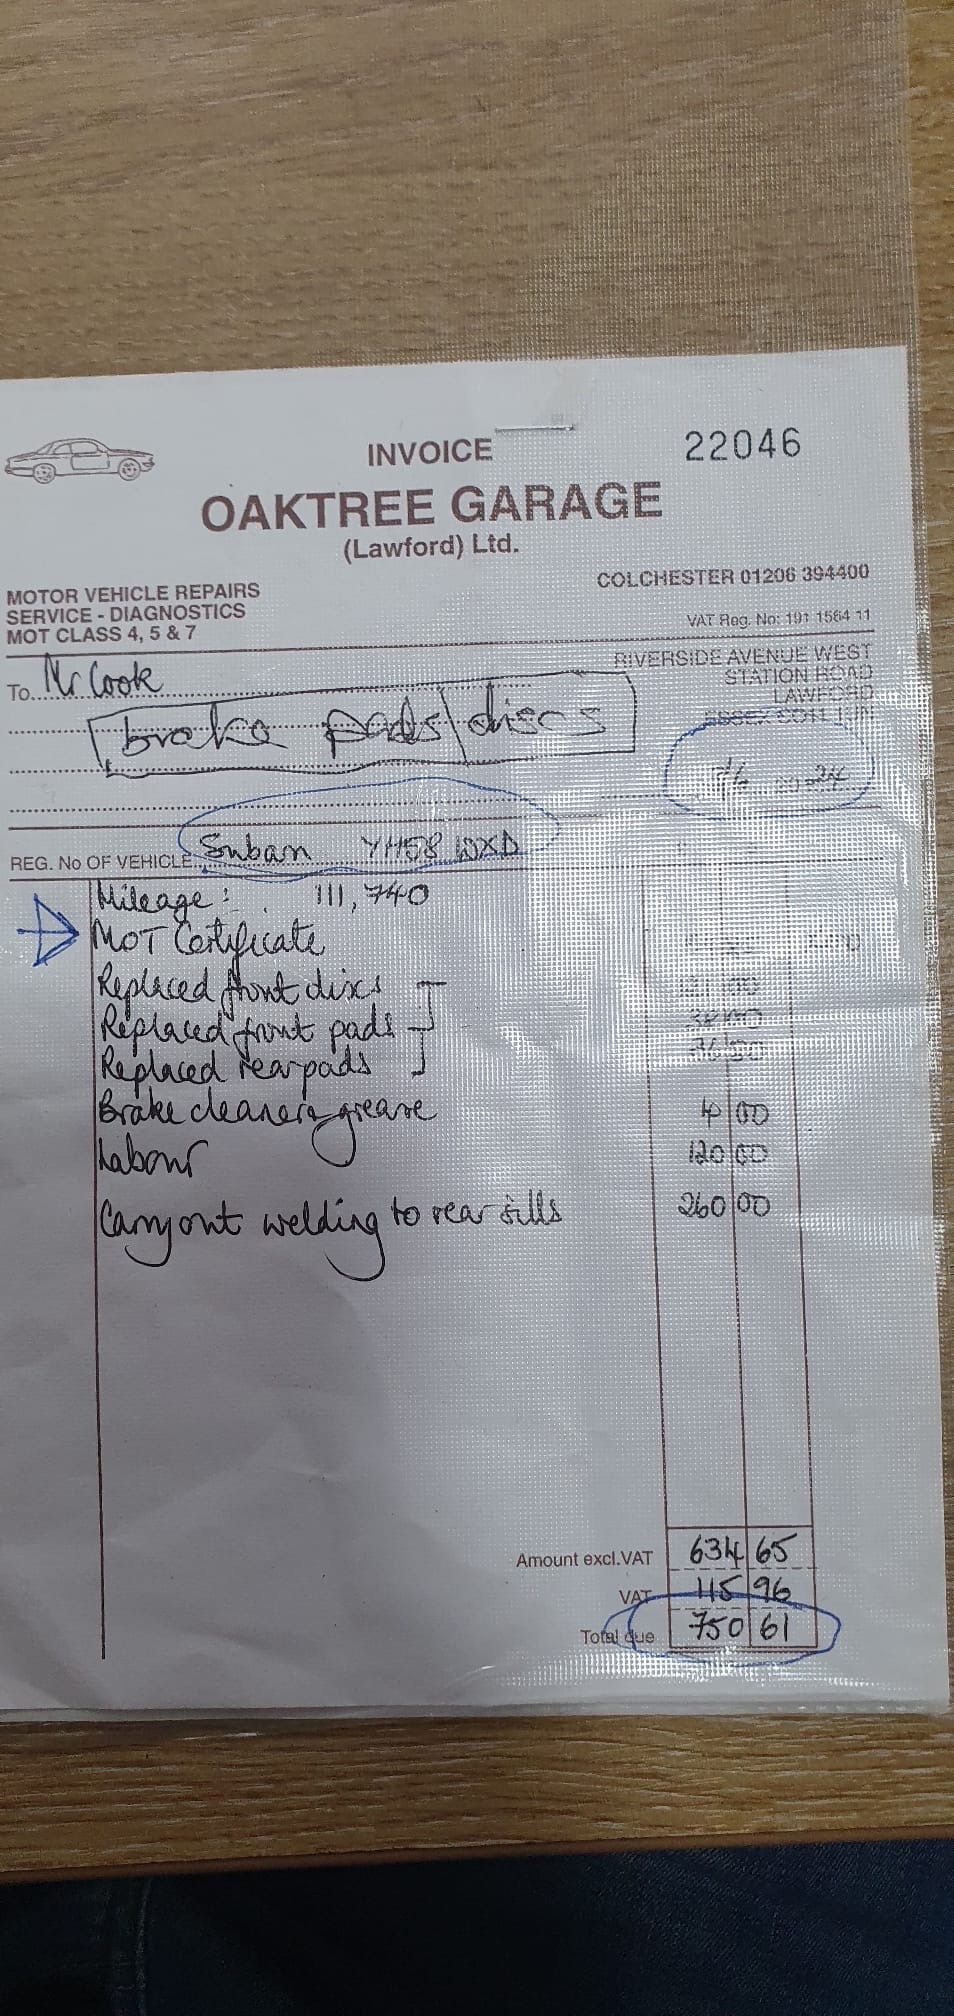 INVOICE 22046
OAKTREE GARAGE
(Lawford) Ltd.
COLCHESTER 01206 394400
MOTOR VEHICLE REPAIRS
SERVICE - DIAGNOSTICS
MOT CLASS 4, 5 & 7
VAT Reg. No: 191 1564 11
RIVERSIDE AVENUE WEST
STATION ROAD
LAWFORD
To Mr Cook
brake pads/discs
REG. No OF VEHICLE Subaru YH58 WXD
Mileage: 111,740
MOT Certificate
Replaced front discs
Replaced front pads
Replaced rear pads
Brake cleaner & grease 4 00
Labour 120 00
Carry out welding to rear sills 260 00
Amount excl.VAT 634 65
VAT 115 96
Total due 750 61